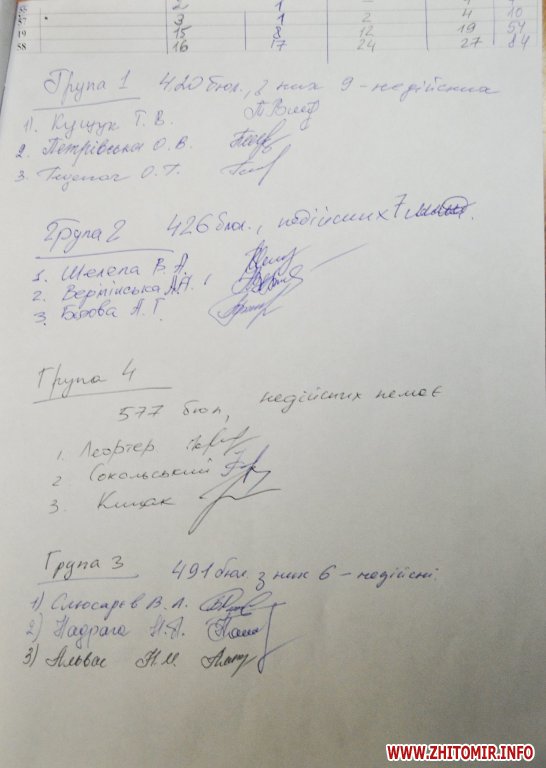 3 1 2 4 10
19 15 8 12 19 54
58 16 17 24 27 84
Група 1 420 бюл., з них 9 - недійсних
1). Кущук Т. В.
2. Петрівська О. В.
3. О. Т.
Група 2 426 бюл., недійсних 7
1. Шелепа В. А.
2. Вермінська А.Н.
3. Бєдова А. Г.
Група 4
577 бюл, недійсних немає
1.
2 Сокольський
3. Кищак
Група 3 491 бюл. з них 6 - недійсні.
1) Слюсарєв В. А.
2) Надрага Н.Л.
3) Альвас Н.М.
WWW.ZHITOMIR.INFO